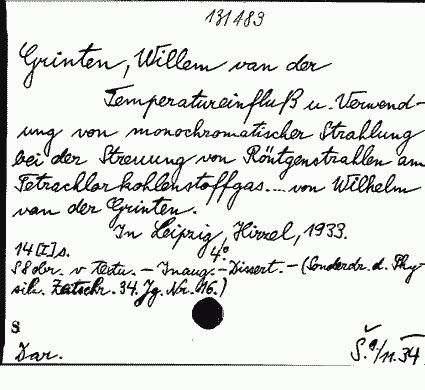 131483
Grinten, Willem van der
Temperatureinfluß u. Verwend-
ung von monochromatischer Strahlung
bei der Streuung von Röntgenstrahlen am
Tetrachlorkohlenstoffgas.... von Wilhelm
van der Grinten.
In Leipzig, Hirzel, 1933.
14 [I] s. 4°
S 8 obr. v textu. – Inaug.-Dissert. – (Sonderdr. d. Phy-
sik. Zeitschr. 34. Jg. Nr. 16.)
S
Dar. Š. 9/11.34